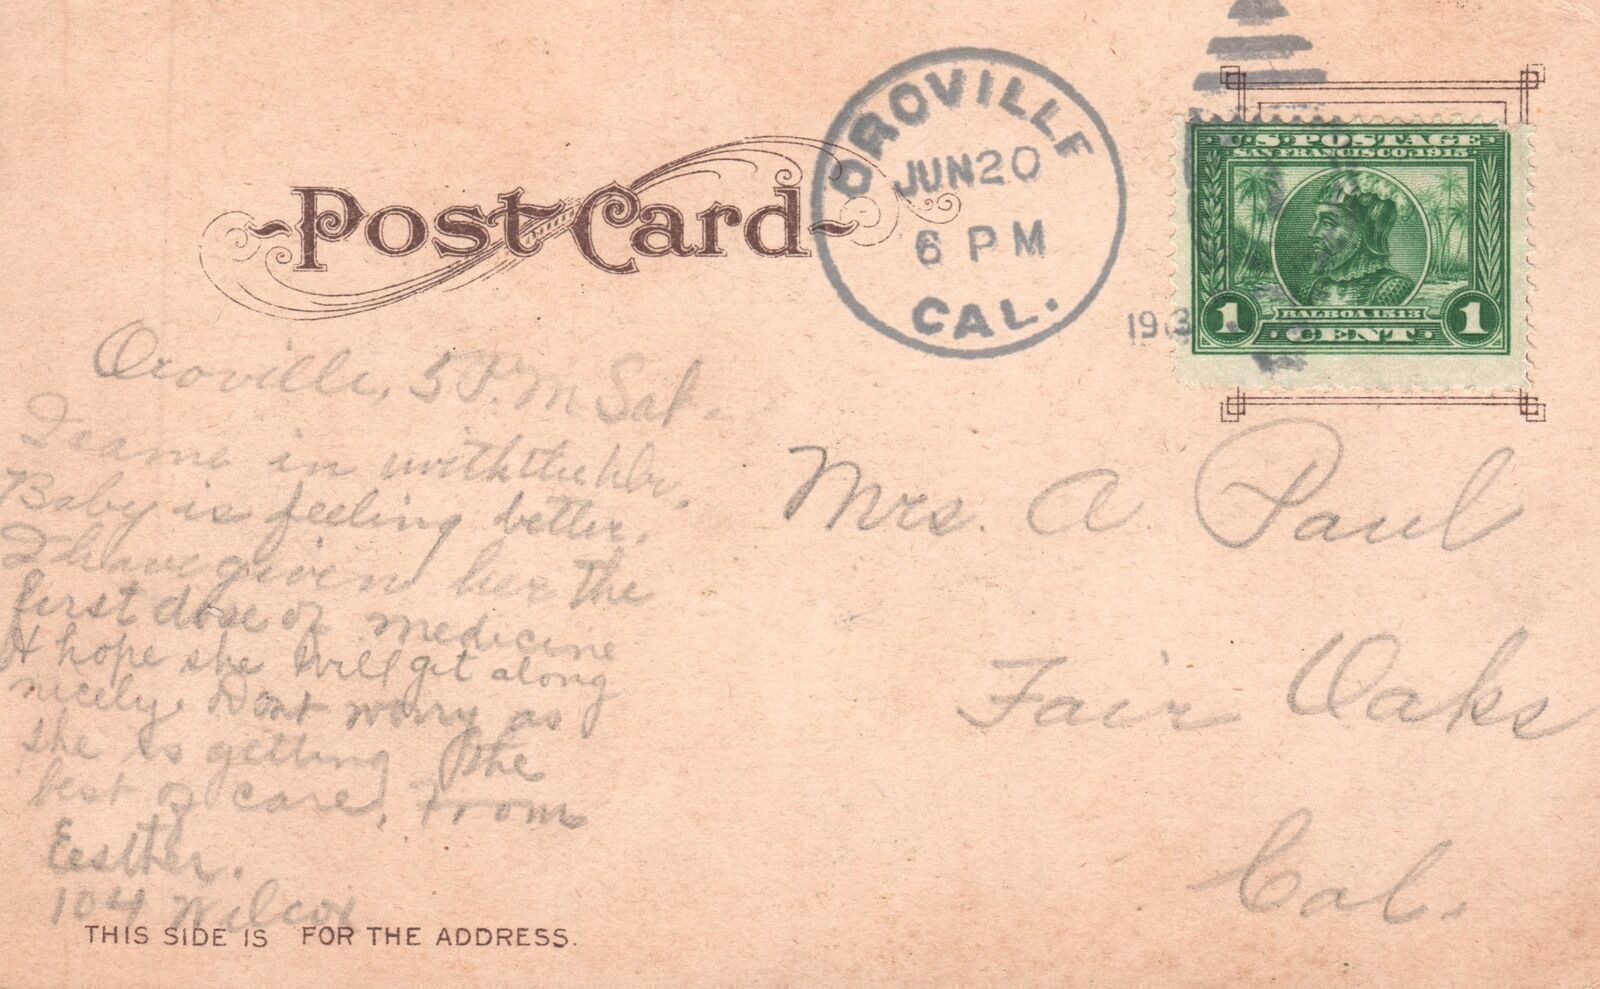 Post Card
OROVILLE
JUN 20
6 PM
CAL.
1913
U.S. POSTAGE
SAN FRANCISCO, 1915
BALBOA 1513
1 CENT 1
Oroville, 5 P.M Sat.
I came in with the
Baby is feeling better.
I have given her the
first dose of medicine
& hope she will get along
nicely. Dont worry as
she is getting the
best of care, From
Eesther.
104 Wilcox
Mrs. A Paul
Fair Oaks
Cal.
THIS SIDE IS FOR THE ADDRESS.